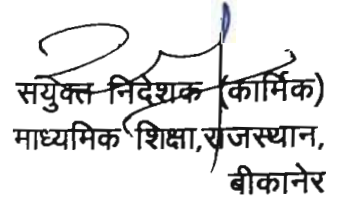 सयुक्त निदेशक (कार्मिक)
माध्यमिक शिक्षा,राजस्थान,
बीकानेर